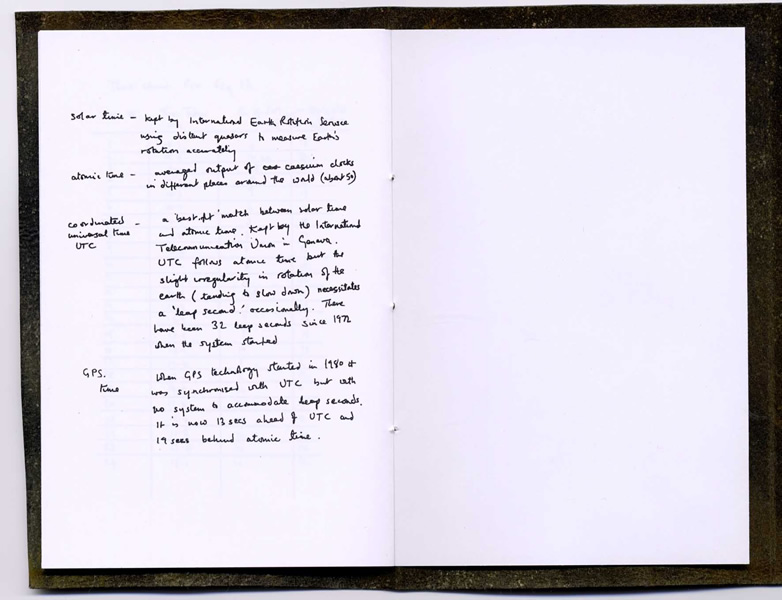 solar time – kept by International Earth Rotation Service
using distant quasars to measure Earth's
rotation accurately
atomic time – averaged output of caesium clocks
in different places around the world (about 50)
coordinated – a 'best fit' match between solar time
universal time and atomic time. Kept by the International
UTC Telecommunication Union in Geneva.
UTC follows atomic time but the
slight irregularity in rotation of the
earth (tending to slow down) necessitates
a 'leap second' occasionally. There
have been 32 leap seconds since 1972
when the system started
GPS. When GPS technology started in 1980 it
time was synchronised with UTC but with
no system to accommodate leap seconds.
It is now 13 secs ahead of UTC and
19 secs behind atomic time.